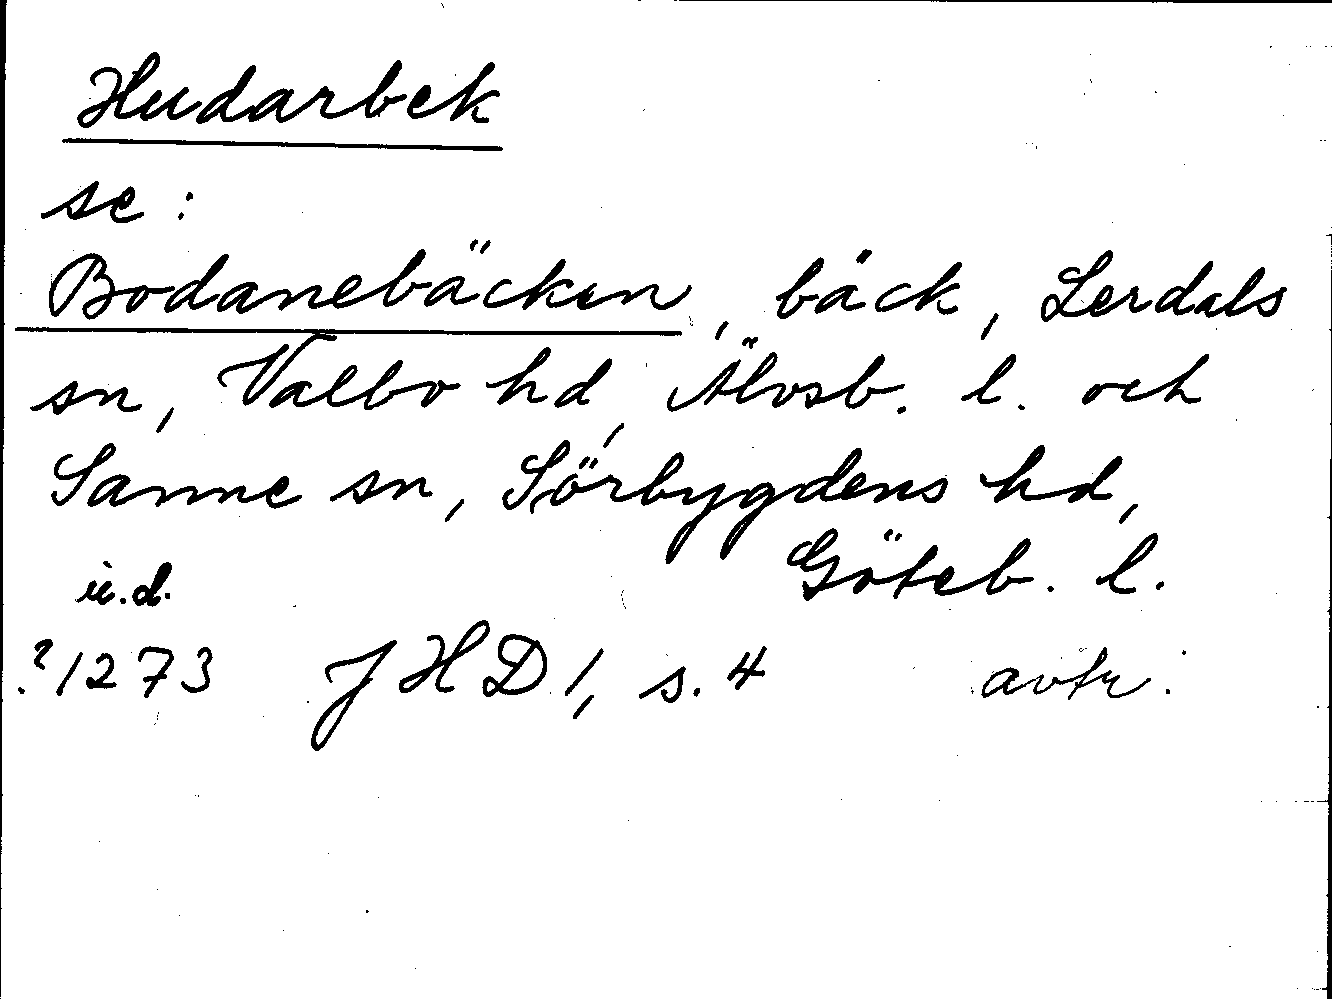 Hudarbek
se:
Bodanebäcken, bäck, Lerdals
sn, Valbo hd, Älvsb. l. och
Sanne sn, Sörbygdens hd,
Göteb. l.
u.d.
?1273 JHD 1, s. 4 avtr.